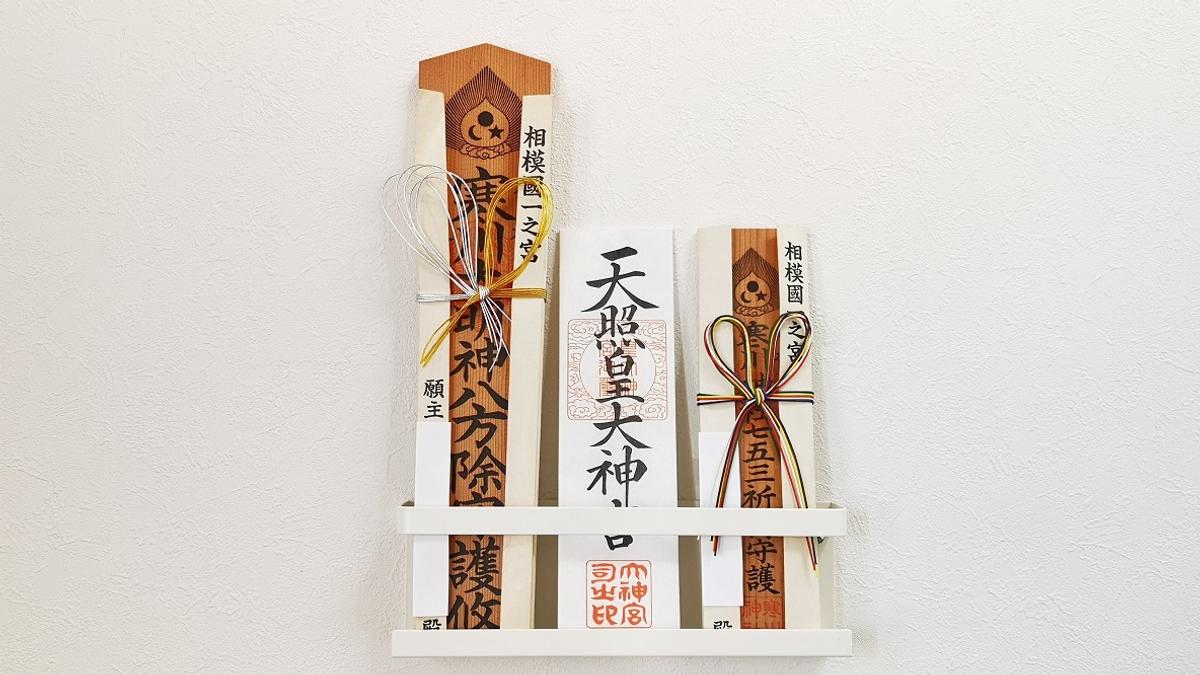 相模國一之宮
寒川大明神八方除守護攸
願主
殿
天照皇大神宮
大神宮
司之印
相模國一之宮
寒川神社七五三祈祷守護
殿